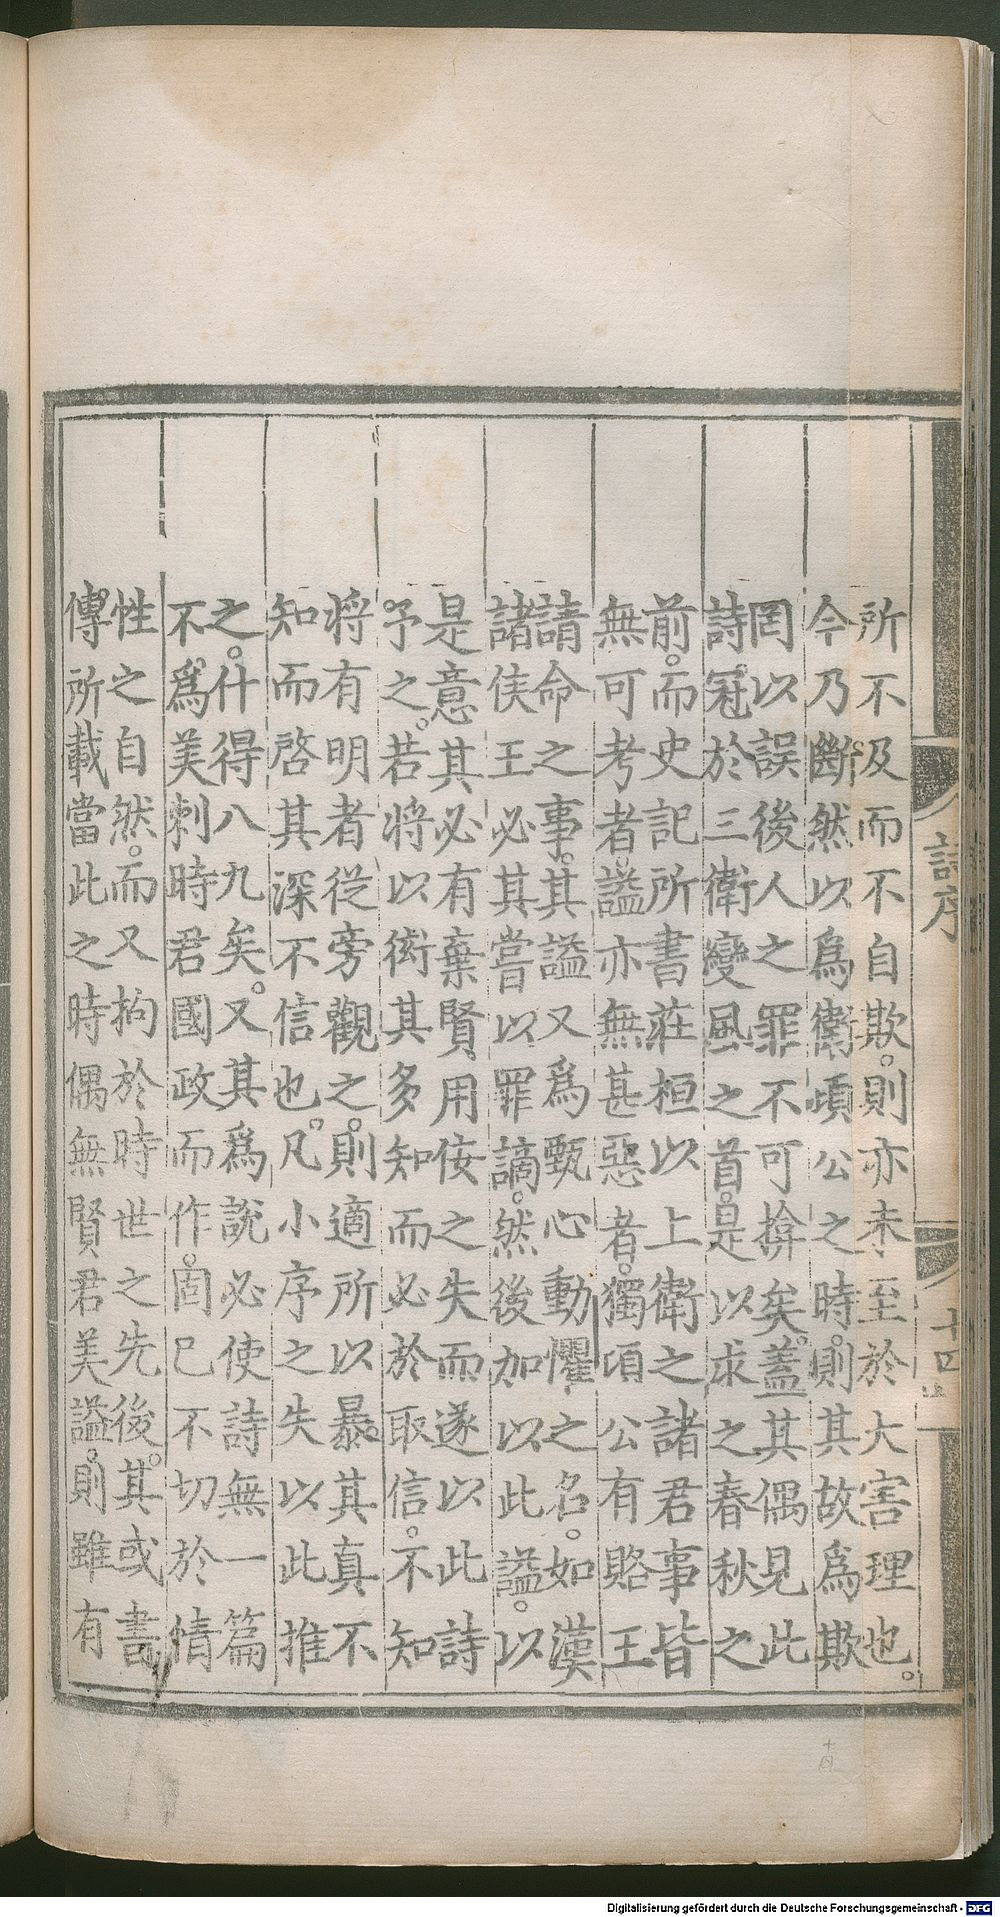 所不及而不自欺。則亦未至於大害理也。
今乃斷然以爲衛頃公之時。則其故爲欺
罔以誤後人之罪不可揜矣。蓋其偶見此
詩冠於三衛變風之首。是以求之春秋之
前。而史記所書莊桓以上衛之諸君事皆
無可考者。謚亦無甚惡者。獨頃公有賂王
請命之事。其謚又爲甄心動懼之名。如漢
諸侯王必其嘗以罪謫。然後加以此謚。以
是意其必有棄賢用佞之失而遂以此詩
予之。若將以衒其多知而必於取信。不知
將有明者從旁觀之。則適所以暴其真不
知而啓其深不信也。凡小序之失以此推
之。什得八九矣。又其爲說必使詩無一篇
不爲美刺時君國政而作。固已不切於情
性之自然。而又拘於時世之先後。其或書
傳所載當此之時偶無賢君美謚。則雖有
詩序
十四
Digitalisierung gefördert durch die Deutsche Forschungsgemeinschaft - DFG